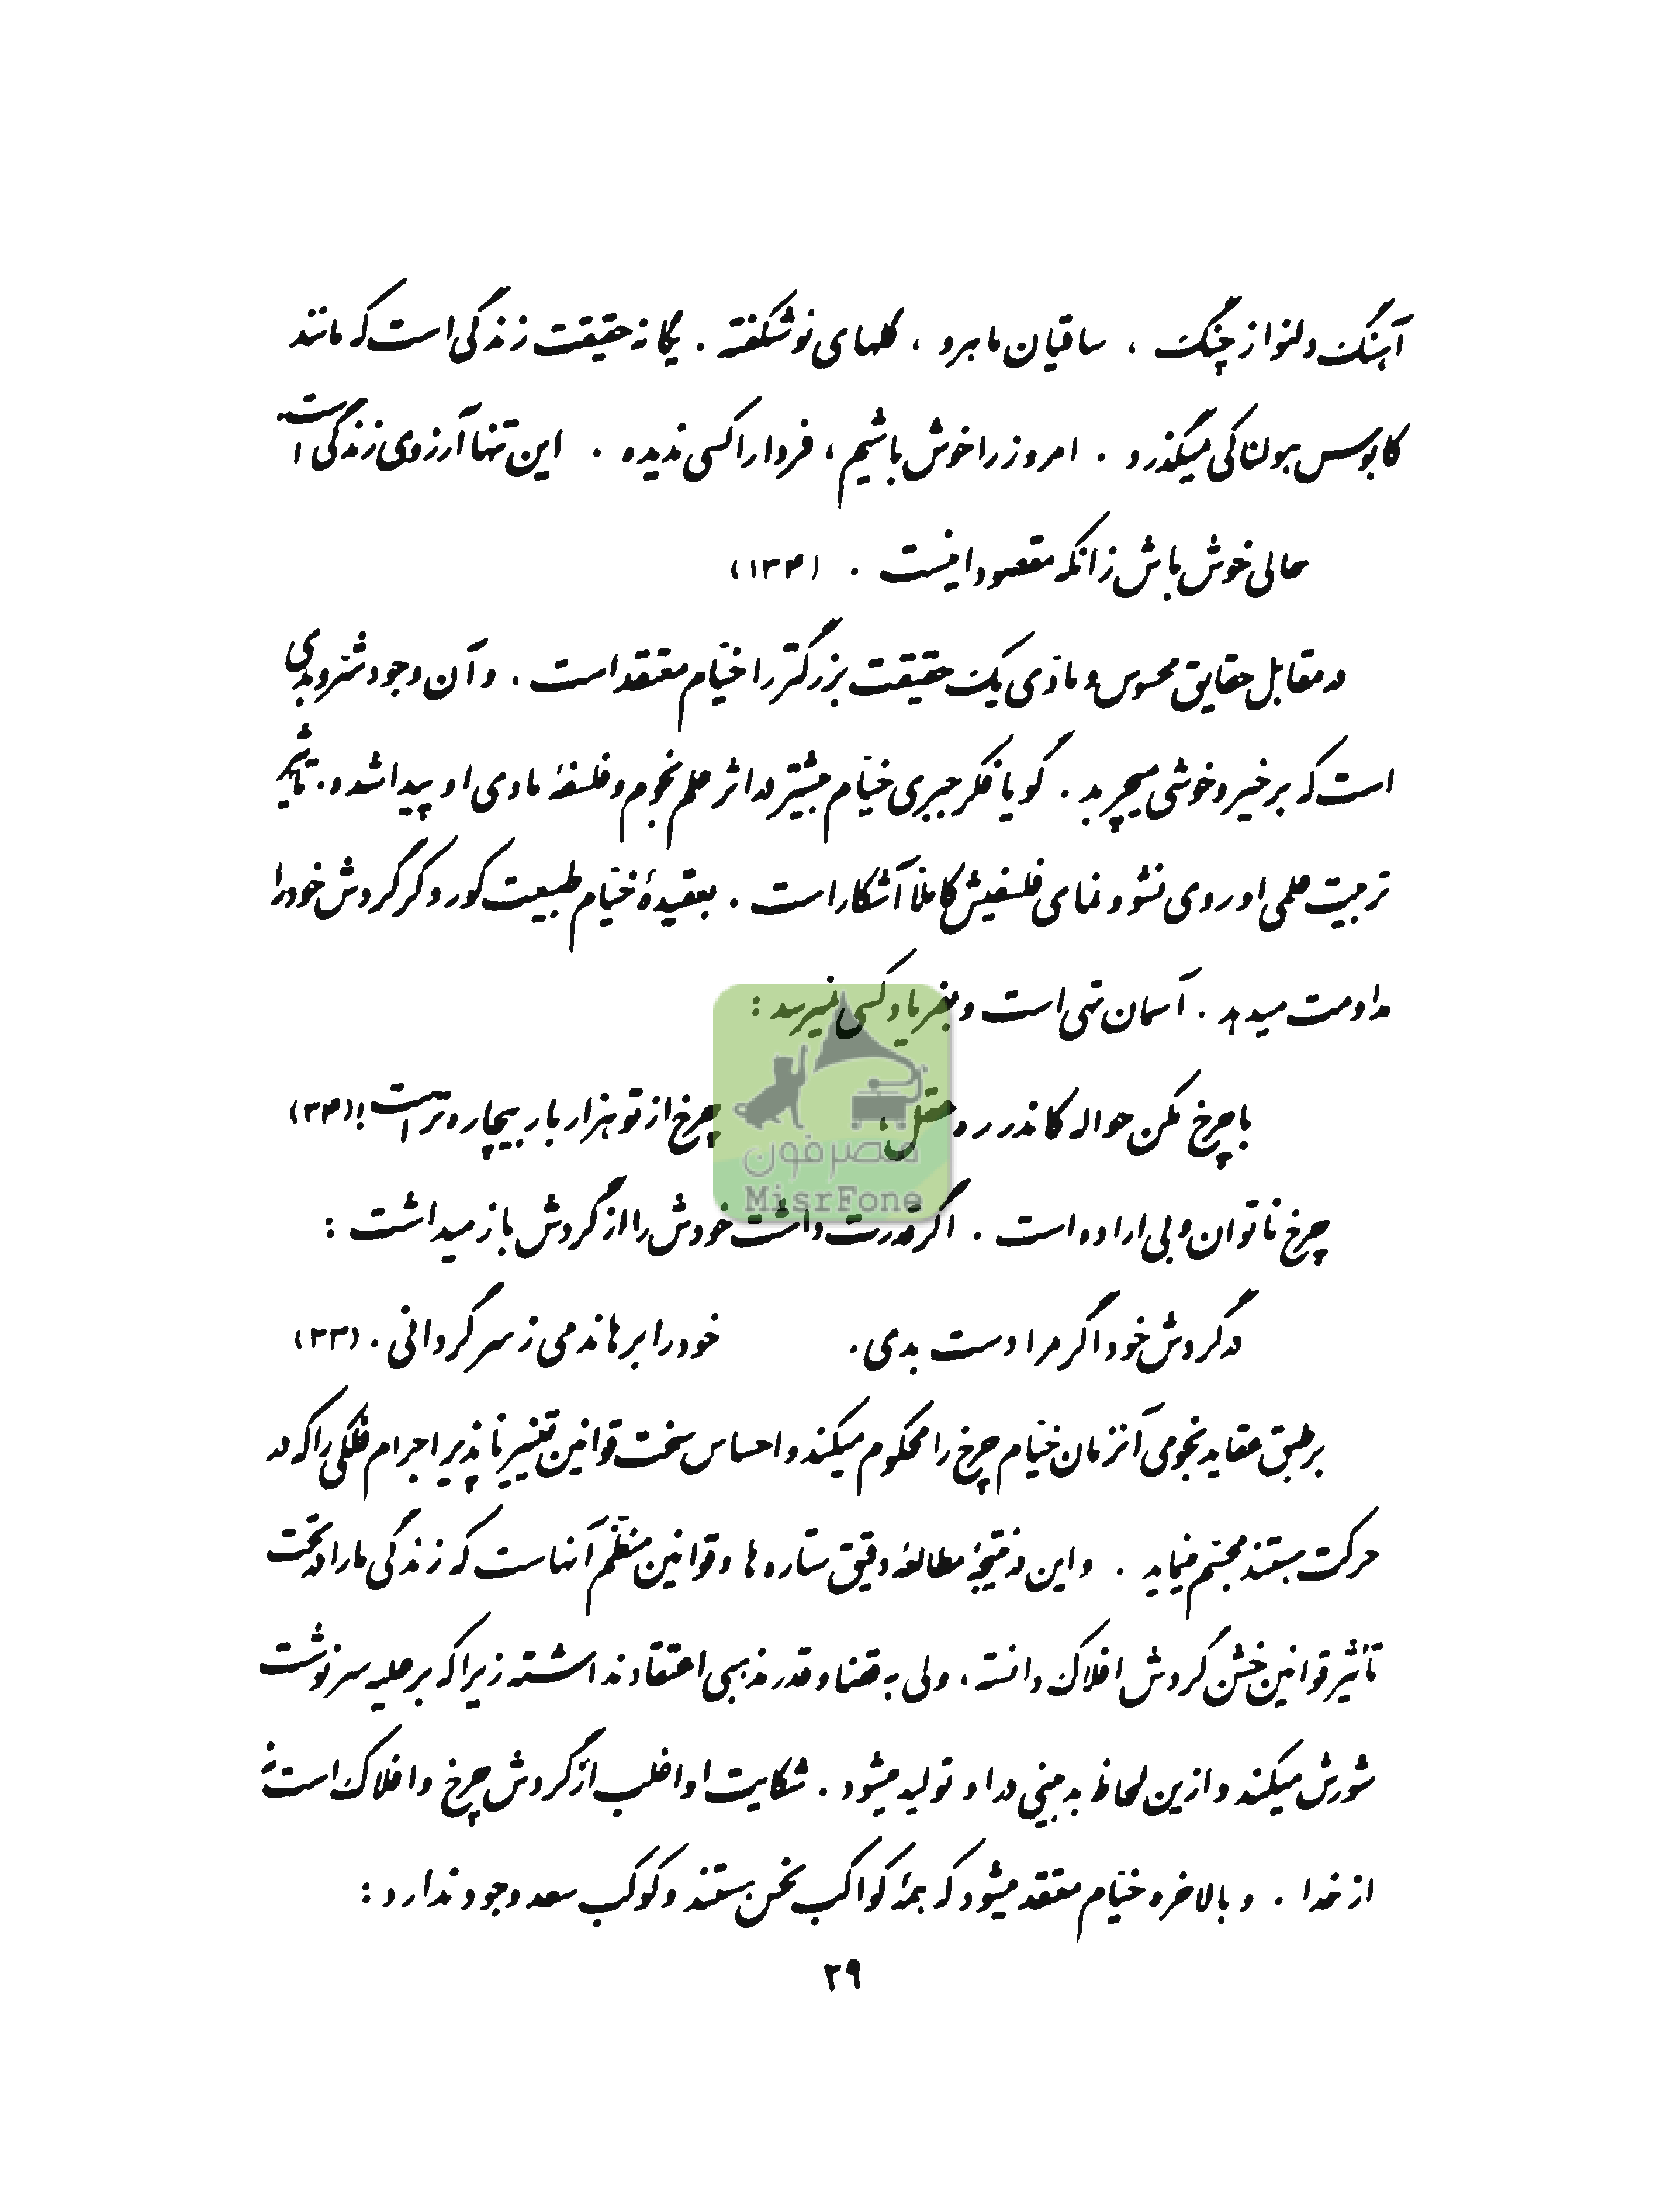 آهنگ دلنواز چنگ ، ساقیان ماهرو ، گلهای نوشکفته . یگانه حقیقت زندگی است که مانند
کابوس هولناکی میگذرد . امروز را خوش باشیم ، فردا را کسی ندیده . این تنها آرزوی زندگی است.
حالی خوش باش زانکه مقصود اینست . (۱۳۴)
در مقابل حقایق محسوس و مادّی یک حقیقت بزرگتر را خیّام معتقد است . و آن وجود شر و بدی
است که بر خیر و خوشی میچربد . گویا فکر جبری خیّام بیشتر در اثر علم نجوم و فلسفهٔ مادی او پیدا شده . تأثیر
تربیت علمی او روی نشو و نمای فلسفیش کاملاً آشکار است . بعقیدهٔ خیّام طبیعت کور و کر گردش خود را
مداومت میدهد . آسمان تهی است و بفریاد کسی نمیرسد :
با چرخ مکن حواله کاندر ره عقل ، چرخ از تو هزار بار بیچاره‌تر است ! (۳۴)
چرخ ناتوان و بی اراده است . اگر قدرت داشت خودش را از گردش باز میداشت :
در گردش خود اگر مرا دست بدی . خود را برهاندمی ز سرگردانی . (۳۳)
بر طبق عقاید نجومی آنزمان خیّام چرخ را محکوم میکند و احساس سخت قوانین تغییر ناپذیر اجرام فلکی را که در
حرکت هستند مجسّم مینماید . و این در نتیجهٔ مطالعهٔ دقیق ستاره ها و قوانین منظّم آنهاست که زندگی ما را در تحت
تأثیر قوانین خشن گردش افلاک دانسته ، ولی به قضا و قدر مذهبی اعتقاد نداشته زیرا که بر علیه سرنوشت
شورش میکند و ازین لحاظ بدبینی در او تولید میشود . شکایت او اغلب از گردش چرخ و افلاک است نه
از خدا . و بالاخره خیّام معتقد میشود که همهٔ کواکب نحس هستند و کوکب سعد وجود ندارد :
مصرفون
MisrFone
۲۹